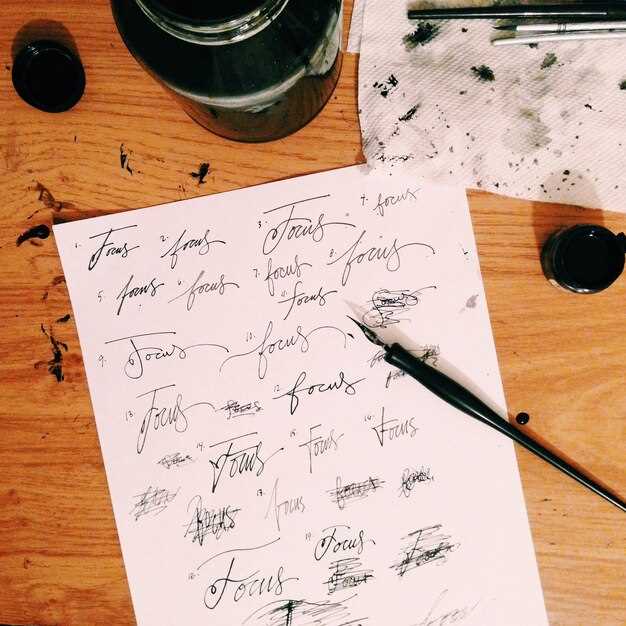 1. Focus 2. focus 3. Focus 4. focus
5. focus 6. focus 7. focus 8. focus
11. focus
9. Focus 10. focus
13. Focus 12. focus
14. Focus 15. Focus 16. Focus
Focus 17. focus focus
18. Focus 19. Focus
Focus